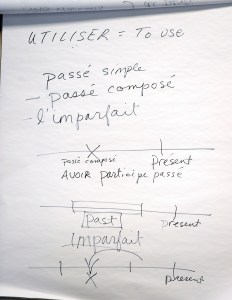 UTILISER = TO USE
passé simple
– passé composé
- l'imparfait
Passé composé Présent
AVOIR participe passé
past présent
Imparfait
présent